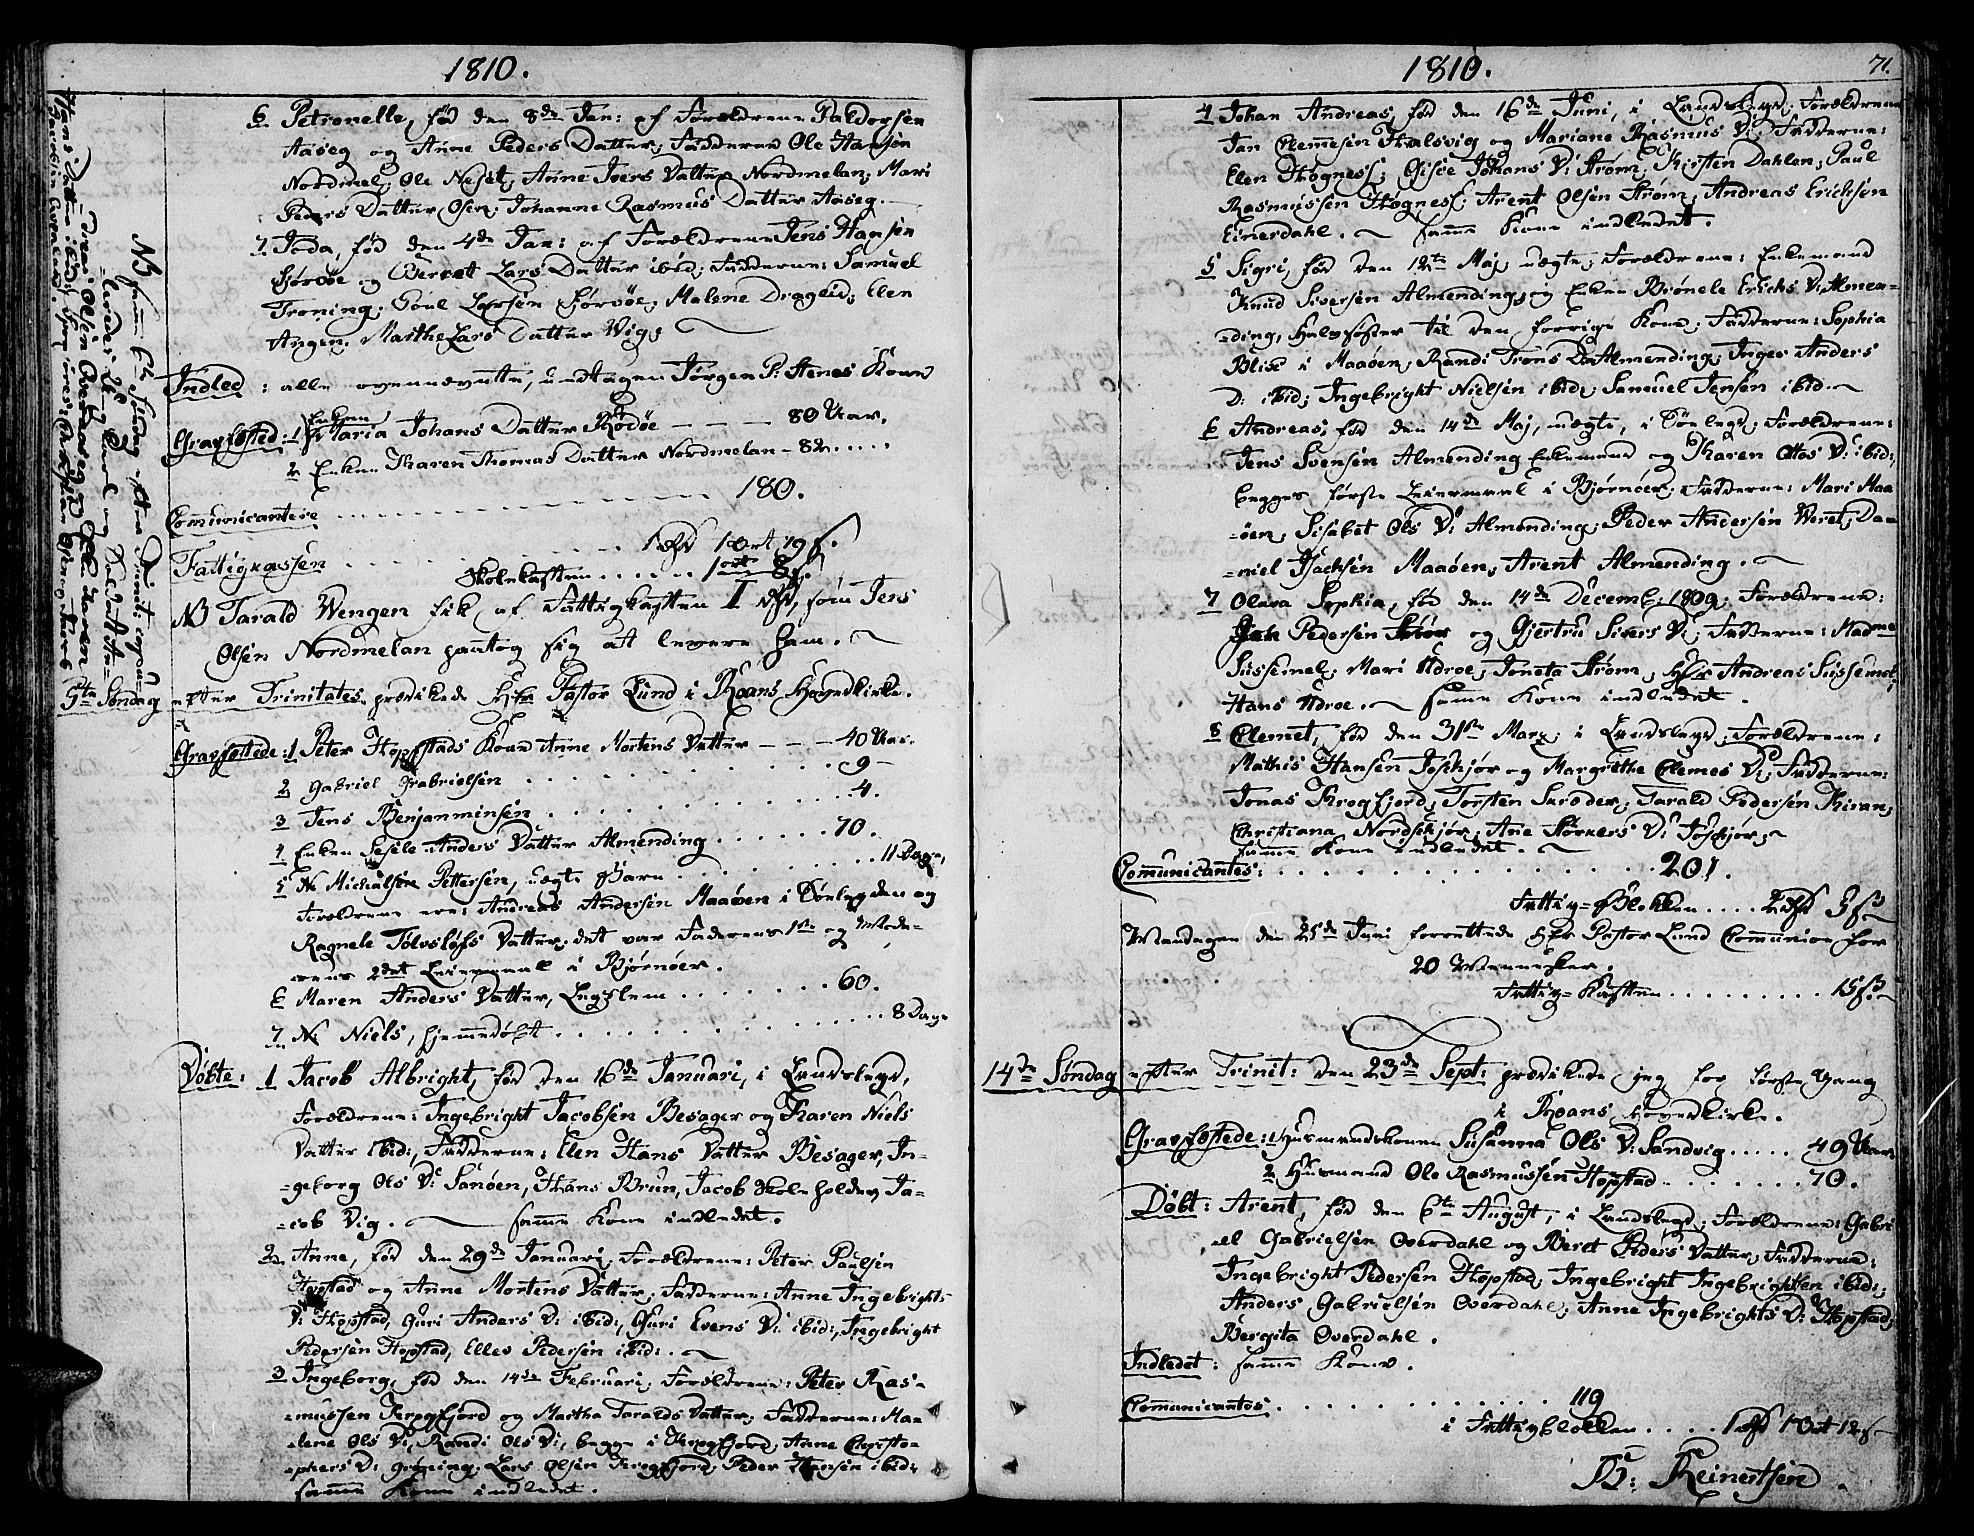 1810.
6. Petronelle, fød den 8de Jan: af Forældrene Paldorsen
Aaseg og Anne Peders Datter; Fadderne Ole Hansen
Nordmel; Ole Neset; Anne Ivers Datter Nordmelan; Mari
Peders Datter Osen; Johanne Rasmus Datter Aaseg.
7. Joda, fød den 4de Jan: af Forældrene Jens Hansen
Størøe og Beret Lars Datter ibid; Fadderne: Samuel
Troning; Poul Larsen Størøe; Malene Drageid; Elen
Angen. Marthe Lars Datter Vig;
Indled: alle ovennevnte, undtagen Jørgen P: Stenes Kone
Gravfæsted: 1 Enken Maria Johans Datter Rødøe — — — 80 Aar.
2 Enken Karen Thomas Datter Nordmelan - 82.....
Communicantere 180.
Fattigkassen 1 rd 1 ort 19 s.
Skolekassen ...... 1 ort 8 s.
NB Tarald Wengen fik af Fattigkassen II rd, som Jens
Olsen Nordmelan paatog sig at levere ham.
5te Søndag efter Trinitates prædikede Hr Pastor Lund i Roans Hovedkirke.
Gravfæstede: 1 Peter Hopstads Kone Anne Mortens Datter — — — 40 Aar.
2 Gabriel Gabrielsen 9 —
3 Jens Benjaminsen 4.
4 Enken Sesele Anders Datter Almending 70.
5 N. Michalsen Pettersen, uægte Barn 11 Dage,
Forældrene ere: Andreas Andersen Maaøen i Søelegden og
Ragnele Tølvsløfs Datter, det var Faderens 1ste og Mode-
rens 2det Leiermaal i Bjørnøer.
6 Maren Anders Datter, Legslem 60.
7. N: Niels, hjemmedøbt 8 Dage
Døbte: 1 Jacob Albright, fød den 16de Januari, i Landslegd,
Forældrene: Ingebright Jacobsen Besager og Karen Niels
Datter ibid:, Fadderne: Elen Hans Datter Besager, In-
=geborg Ols D: Sanøen, Hans Brun, Jacob Skoleholder, Ja-
=cob Vig. samme Kone indledet.
2. Anne, fød den 29de Januari, Forældrene: Peter Paulsen
Hopstad og Anne Mortens Datter; Fadderne: Anne Ingebrights
D: Hopstad, Guri Anders D: ibid:, Guri Evens D: ibid:, Ingebright
Pedersen Hopstad, Elles Pedersen ibid:.
3 Ingeborg, fød den 14de Februari; Forældrene: Peter Ras-
=mussen Krogfjord og Martha Taralds Datter; Fadderne: Ma-
=lene Ols D:, Randi Ols D:, begge i Krogfjord; Anne Christo-
=phers D: Grøning; Lars Olsen Krogfjord; Peder Hansen ibid:
samme Kone indledet.
NB samme 5te Søndag efter Trinit:
1810.
71.
4 Johan Andreas, fød den 16de Juni, i Landslegd; Forældrene
Jan Clemesen Kalsvig og Mariane Rasmus D:, Fadderne:
Elen Hognes; Gisøe Johans D: Strøm; Kirsten Dahlen; Paul
Rasmussen Hognes; Arent Olsen Strøm; Andreas Ericksen
Einerdahl. samme Kone indledet.
5 Sigri, fød den 12te Maj uægte; Forældrene: Enkemand
Knud Siversen Almending og Enken Brønele Erichs D: Almen=
=ding, Halvsøster til den forrige Kone; Fadderne: Sophia
Blise i Maaøen; Randi Trons D: Almending; Inger Anders
D: ibid; Ingebright Nielsen ibid; Samuel Jensen ibid.
6 Andreas, fød den 14de Maj, uægte, i Søelegd; Forældrene:
Jens Svensen Almending Enkemand og Karen Ottos D: ibid:,
begges første Leiermaal i Bjørnøer, Fadderne: Mari Maa
=øen, Sisabet Ols D: Almending; Peder Andersen Weret; Da=
=niel Isachsen Maaøen, Arent Almending.
7 Olava Sophia, fød den 14de Decemb: 1809; Forældrene:
Pedersen og Gjertru Sivers D:; Fadderne: Madme
Sussemel; Mari Udroe; Joneta Strøm; Hr Andreas Sussemel,
Hans Udroe. samme Kone indledet.
8 Clemet, fød den 31te Marz; i Landslegd; Forældrene:
Mathis Hansen Joskjør og Margrethe Clemes D:; Fadderne:
Jonas Krogfjord; Torsten Skrøder; Tarald Pedersen Kiran;
Christiana Nordskjør; Ane Størkers D: Joskjør;
samme Kone indledet.
Communicantes: 201.
Fattig=Blokken .... 2 rd 3 s
Mandagen den 25de Juni forrettede Hr Pastor Lund Communion for
20 Mennesker.
Fattig=Kassen 15 s.
14de Søndag efter Trinit: den 23de Sept: prædikede jeg for første Gang
i Roans Hovedkirke.
Gravfæstede: 1 Husmandskonen Susanna Ols D: Sandvig ..... 49 Aar
2 Husmand Ole Rasmussen Hopstad 70.
Døbt: Arent, fød den 6te August, i Landslegd; Forældrene: Gabri
=el Gabrielsen Overdahl og Beret Peders Datter; Fadderne:
Ingebright Pedersen Hopstad; Ingebright Ingebrightsen ibid:;
Anders Gabrielsen Overdahl; Anne Ingebrights D: Hopstad;
Bergita Overdahl.
Indledet: samme Kone.
Communicantes 119
i Fattigblokken .... 1 rd 1 Ort 12 s
B: Reinertsen.